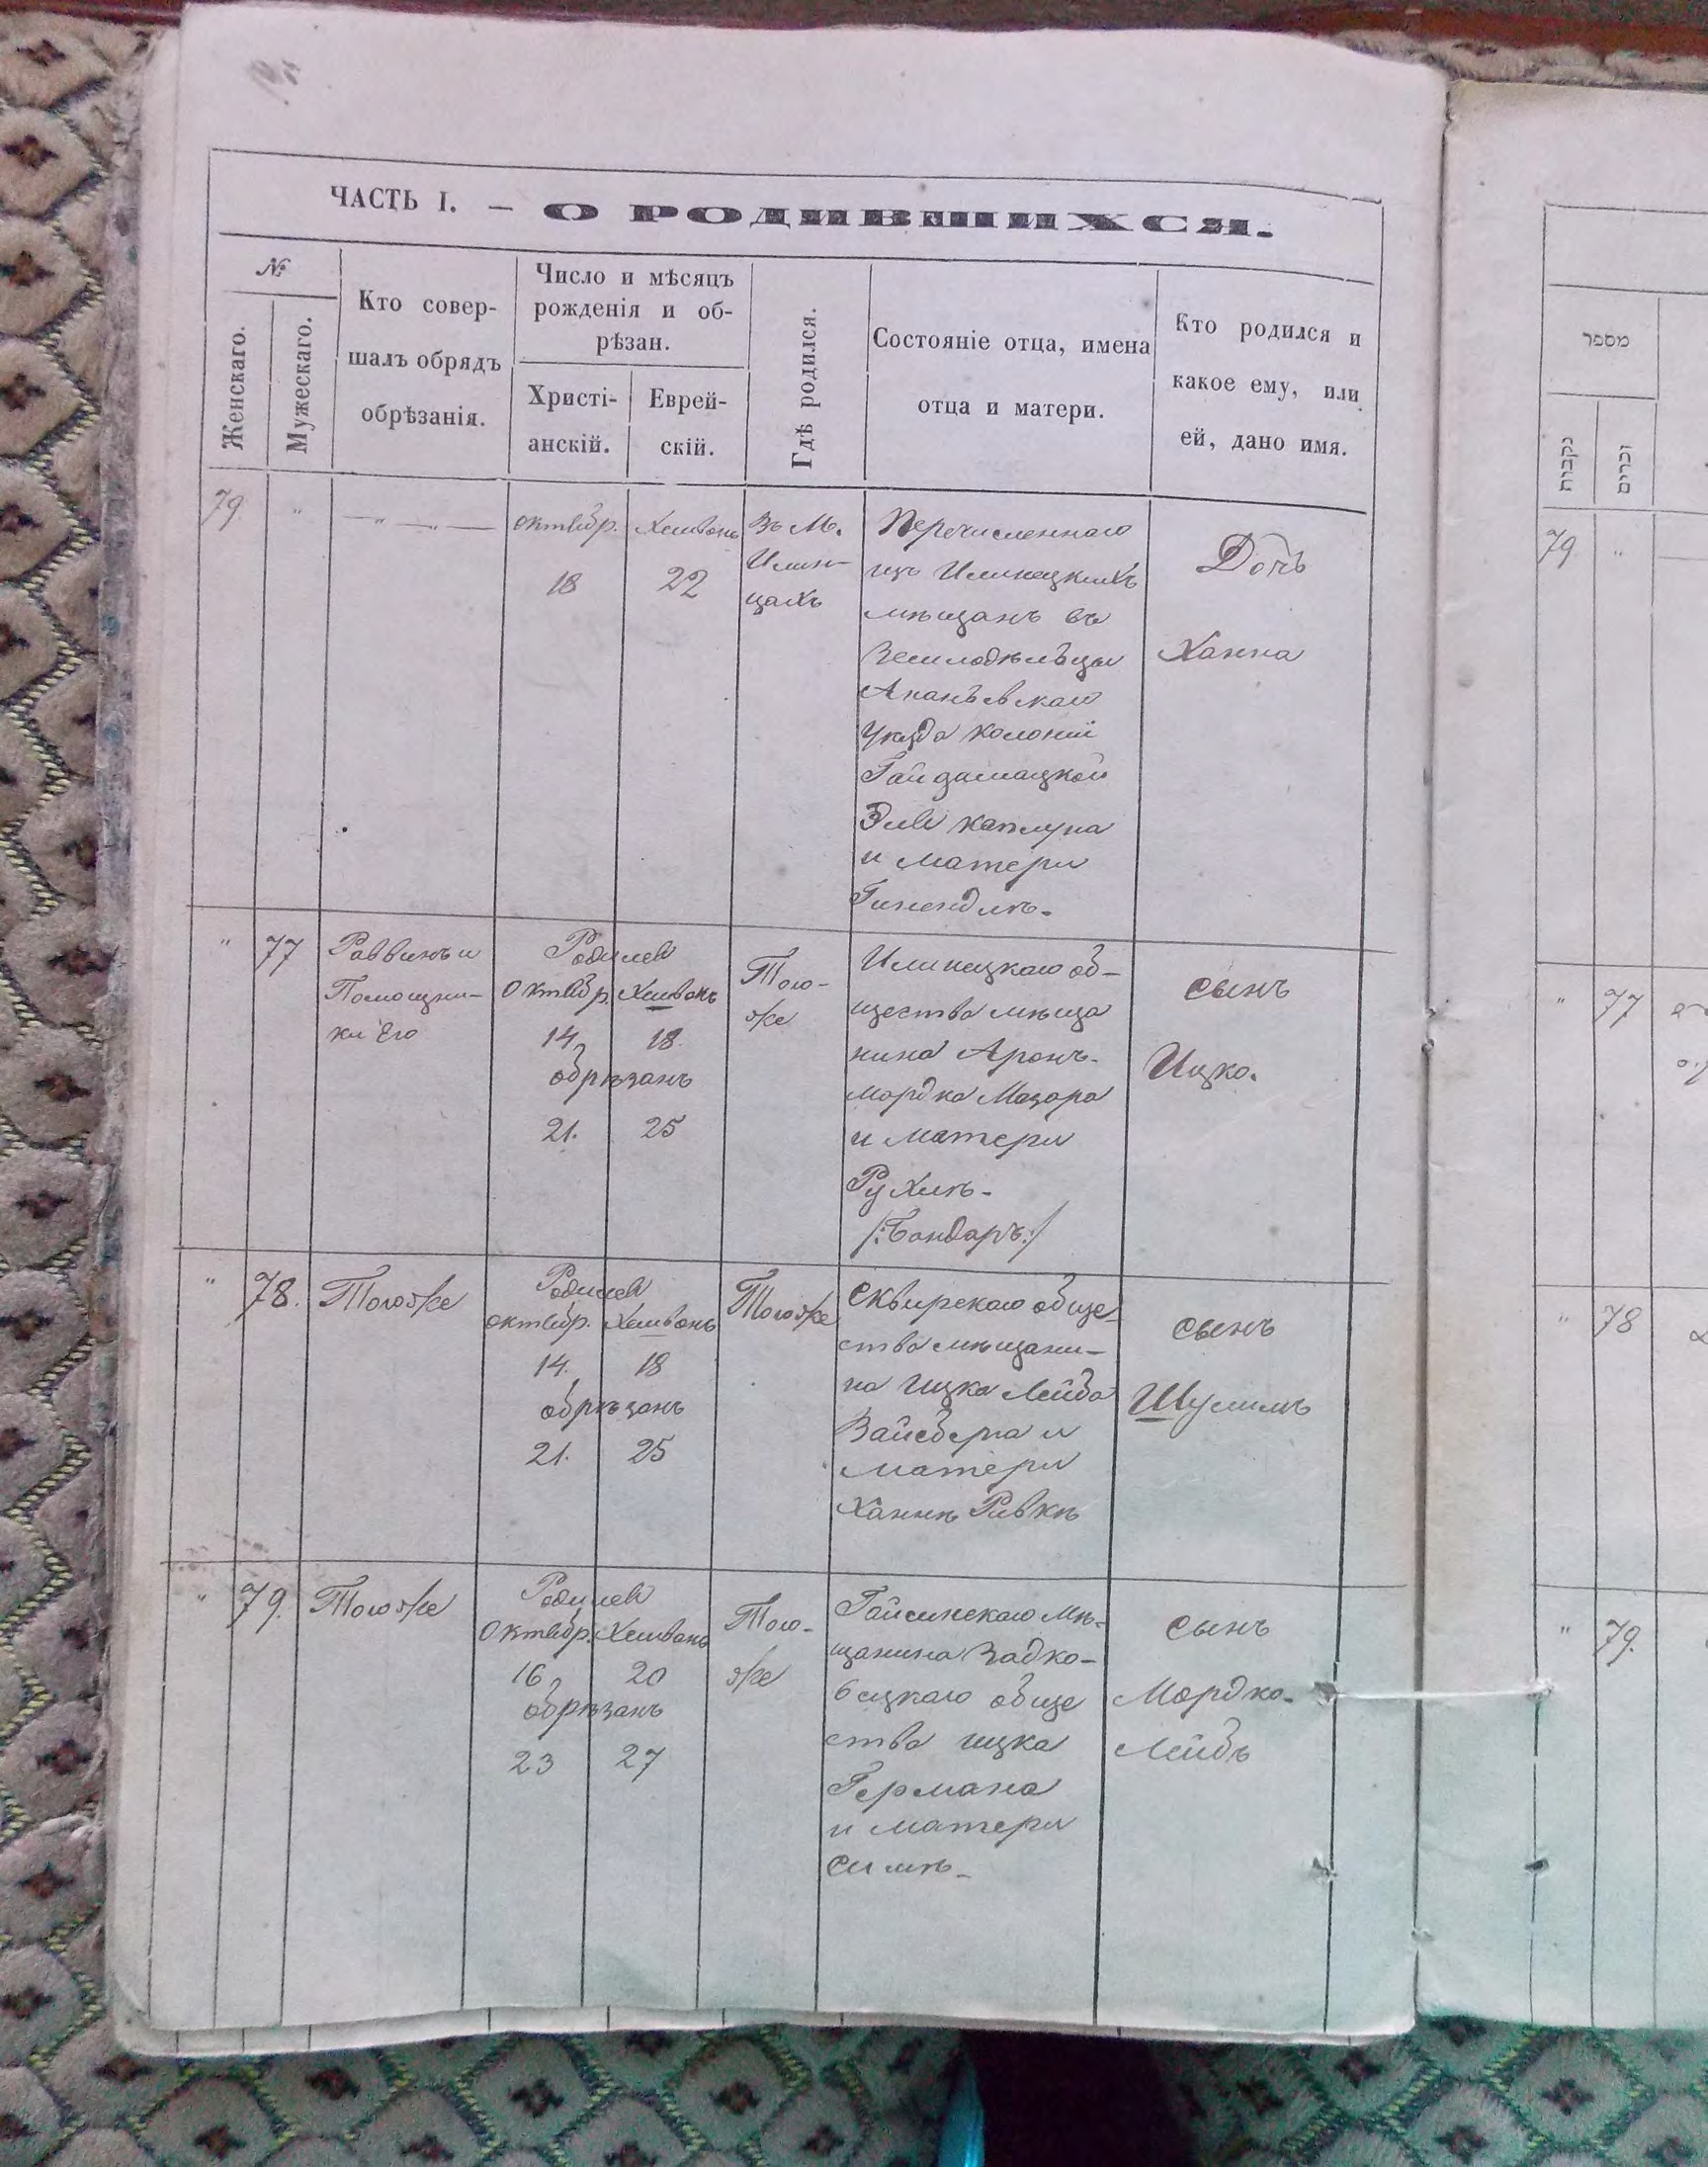 ЧАСТЬ I. — О РОДИВШИХСЯ.
№
Женскаго.
Мужескаго.
Кто совер-
шалъ обрядъ
обрѣзанія.
Число и мѣсяцъ
рожденія и об-
рѣзан.
Христі-
анскій.
Еврей-
скій.
Гдѣ родился.
Состояніе отца, имена
отца и матери.
Кто родился и
какое ему, или
ей, дано имя.
79
"
— " — " —
октябр.
18
Хешванъ
22
Въ М.
Илин-
цахъ
Перечисленнаго
изъ Илинецкихъ
мѣщанъ въ
Земледѣльцы
Ананьевскаго
уѣзда колоніи
Гайдамацкой
Эли Каплуна
и матери
Гинендлѣ.
Дочь
Ханна
"
77
Раввинъ и
Помощни-
ки Его
Родился
Октябр. Хешванъ
14 18
обрѣзанъ
21. 25
Того-
же
Илинецкаго об-
щества мѣща
нина Аронъ-
мордка Мазара
и матери
Рухлѣ-
/:Бондарь:/
Сынъ
Ицко.
"
78.
Тогоже
Родился
октябр. Хешванъ
14. 18
обрѣзанъ
21. 25
Тогоже
Сквирскаго обще
ства мѣщани-
на Ицка Лейба
Вайсберга и
матери
Ханнѣ Ривкѣ
Сынъ
Шулимъ
"
79.
Тогоже
Родился
Октябр. Хешванъ
16 20
обрѣзанъ
23 27
Того-
же
Гайсинскаго мѣ-
щанина Задко-
вецкаго обще
ства Ицка
Германа
и матери
Симѣ-
Сынъ
Мордко-
Лейбъ
מספר
נקבות
זכרים
79
"
"
77
"
78
"
79.